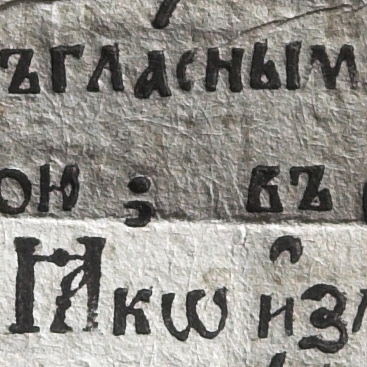 ъгласным
ою ; въ
Ꙗкѡ и҆з